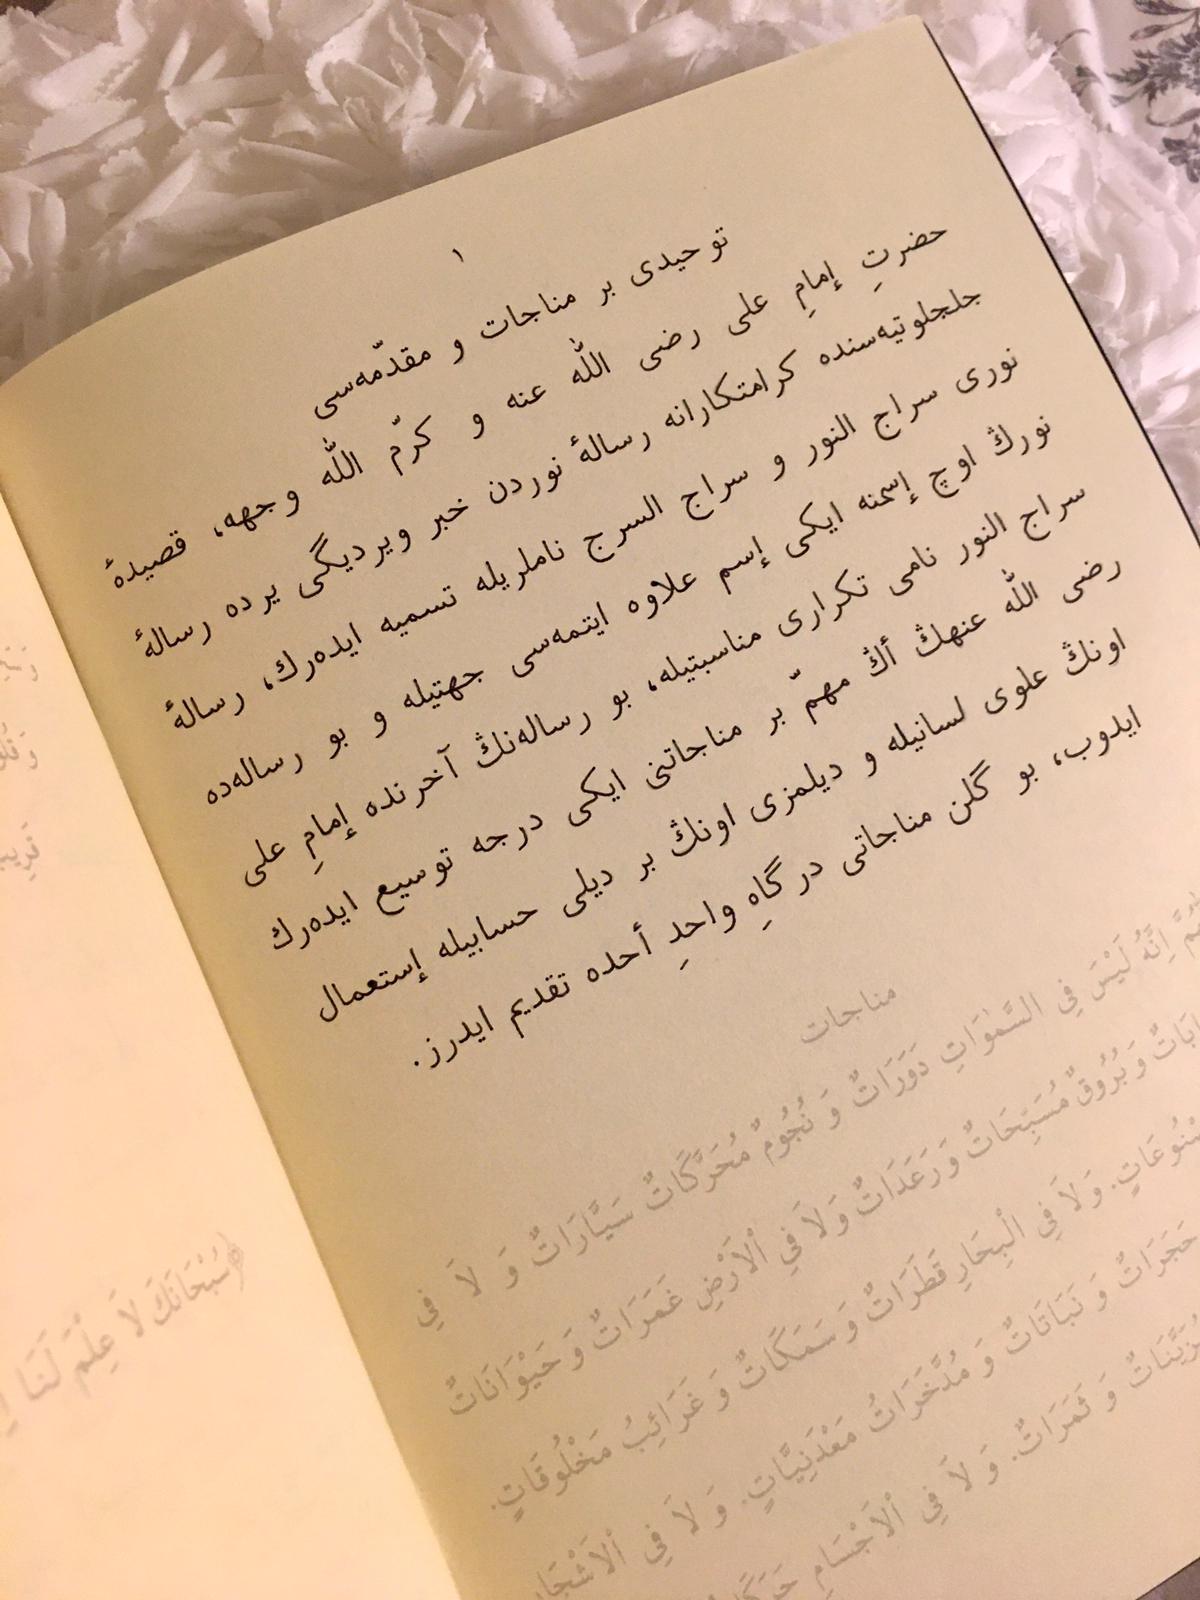 ١
توحيدى بر مناجات و مقدّمه‌سى
حضرتِ إمامِ على رضى الله عنه و كرّم الله وجهه، قصيدۀ
جلجلوتيه‌سنده كرامتكارانه رسالۀ نوردن خبر ويرديگى يرده رسالۀ
نورى سراج النور و سراج السرج ناملريله تسميه ايده‌رك، رسالۀ
نورڭ اوچ إسمنه ايكى إسم علاوه ايتمه‌سى جهتيله و بو رساله‌ده
سراج النور نامى تكرارى مناسبتيله، بو رساله‌نڭ آخرنده إمامِ على
رضى الله عنهڭ أڭ مهمّ بر مناجاتنى ايكى درجه توسيع ايده‌رك
اونڭ علوى لسانيله و ديلمزى اونڭ بر ديلى حسابيله إستعمال
ايدوب، بو گلن مناجاتى درگاهِ واحدِ أحده تقديم ايدرز.
مناجات
اِنَّهُ لَيْسَ فِى السَّمٰوَاتِ دَوَرَاتٌ وَ نُجُومٌ مُحَرَّكَاتٌ سَيَّارَاتٌ وَ لاَ فِى
وَ بُرُوقٌ مُسَبِّحَاتٌ وَ رَعَدَاتٌ وَلاَ فِى اْلاَرْضِ غَمَرَاتٌ وَ حَيْوَانَاتٌ
وَلاَ فِى الْبِحَارِ قَطَرَاتٌ وَ سَمَكَاتٌ وَ غَرَائِبُ مَخْلُوقَاتٍ.
حَجَرَاتٌ وَ نَبَاتَاتٌ وَ مُدَّخَرَاتُ مَعْدَنِيَّاتٍ. وَ لاَ فِى
وَ ثَمَرَاتٌ. وَ لاَ فِى اْلاَجْسَامِ
سُبْحَانَكَ لاَ عِلْمَ لَنَا